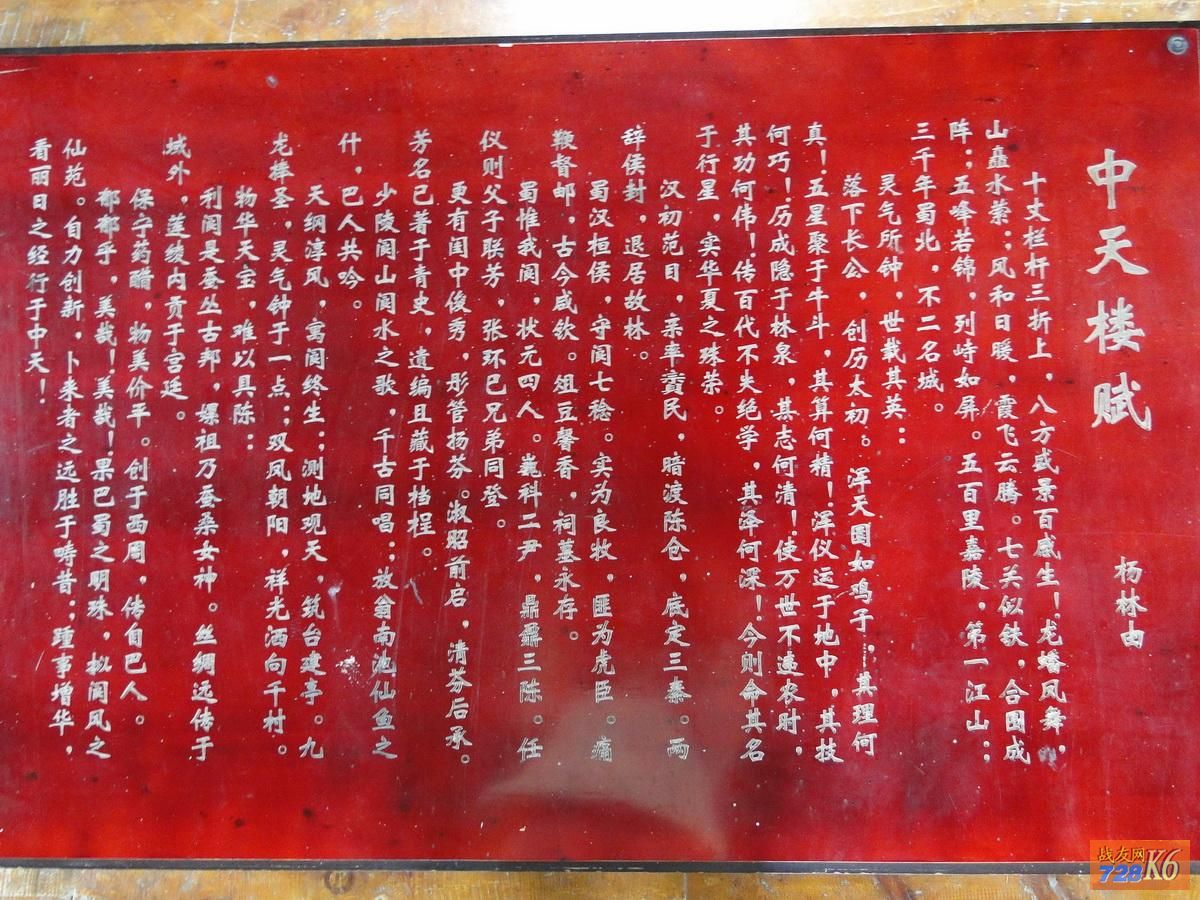 中天楼赋
杨林由
十丈栏杆三折上，八方盛景百感生！龙蟠凤舞，
山矗水萦；风和日暖，霞飞云腾。七关似铁，合围成
阵；五峰若锦，列峙如屏。五百里嘉陵，第一江山；
三千年蜀北，不二名城。
灵气所钟，世载其英：
落下长公，创历太初。浑天圆如鸡子，其理何
真！五星聚于牛斗，其算何精！浑仪运于地中，其技
何巧！历成隐于林泉，其志何清！使万世不违农时，
其功何伟！传百代不失绝学，其泽何深！今则命其名
于行星，实华夏之殊荣。
汉初范目，亲率賨民，暗渡陈仓，底定三秦。两
辞侯封，退居故林。
蜀汉桓侯，守阆七稔。实为良牧，匪为虎臣。痛
鞭督邮，古今咸钦。俎豆馨香，祠墓永存。
蜀惟我阆，状元四人。巍科二尹，鼎鼐三陈。任
仪则父子联芳，张环巳兄弟同登。
更有闺中俊秀，彤管扬芬。淑昭前启，清芬后承。
芳名已著于青史，遗编且藏于档桯。
少陵阆山阆水之歌，千古同唱；放翁南池仙鱼之
什，巴人共吟。
天纲淳风，寓阆终生；测地观天，筑台建亭。九
龙捧圣，灵气钟于一点；双凤朝阳，祥光洒向千村。
物华天宝，难以具陈：
利阆是蚕丛古邦，嫘祖乃蚕桑女神。丝绸远传于
域外，莲绫内贡于宫廷。
保宁药醋，物美价平。创于西周，传自巴人。
郁郁乎，美哉！美哉！果巴蜀之明珠，拟阆风之
仙苑。自力创新，卜来者之远胜于畴昔；踵事增华，
看丽日之经行于中天！
战友网
728K6